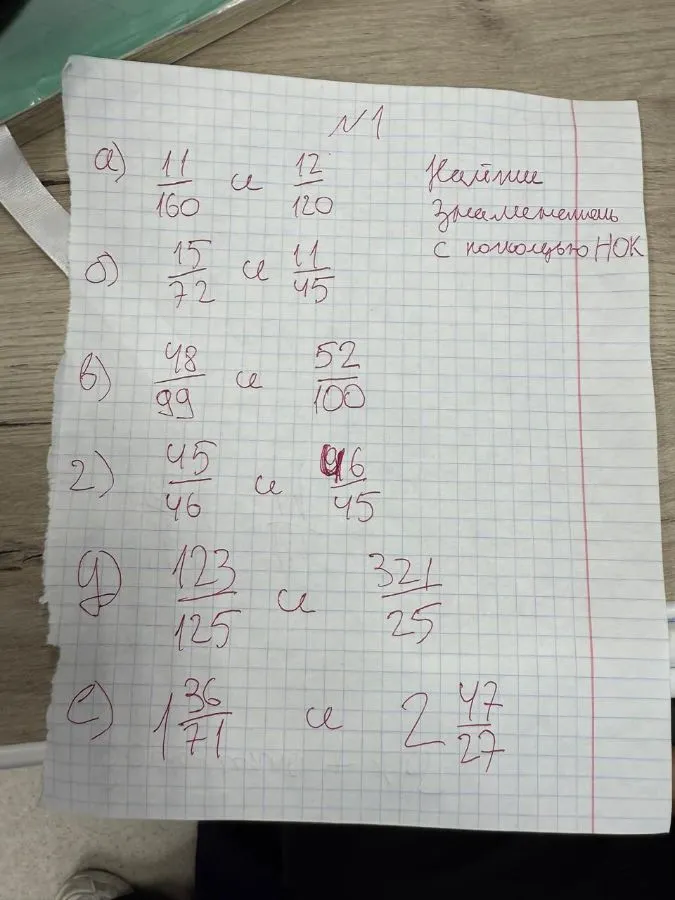 №1
а) 11/160 и 12/120
Найти
знаменатель
с помощью НОК
б) 15/72 и 11/45
в) 48/99 и 52/100
г) 45/46 и 46/45
д) 123/125 и 321/25
е) 1 36/71 и 2 47/27